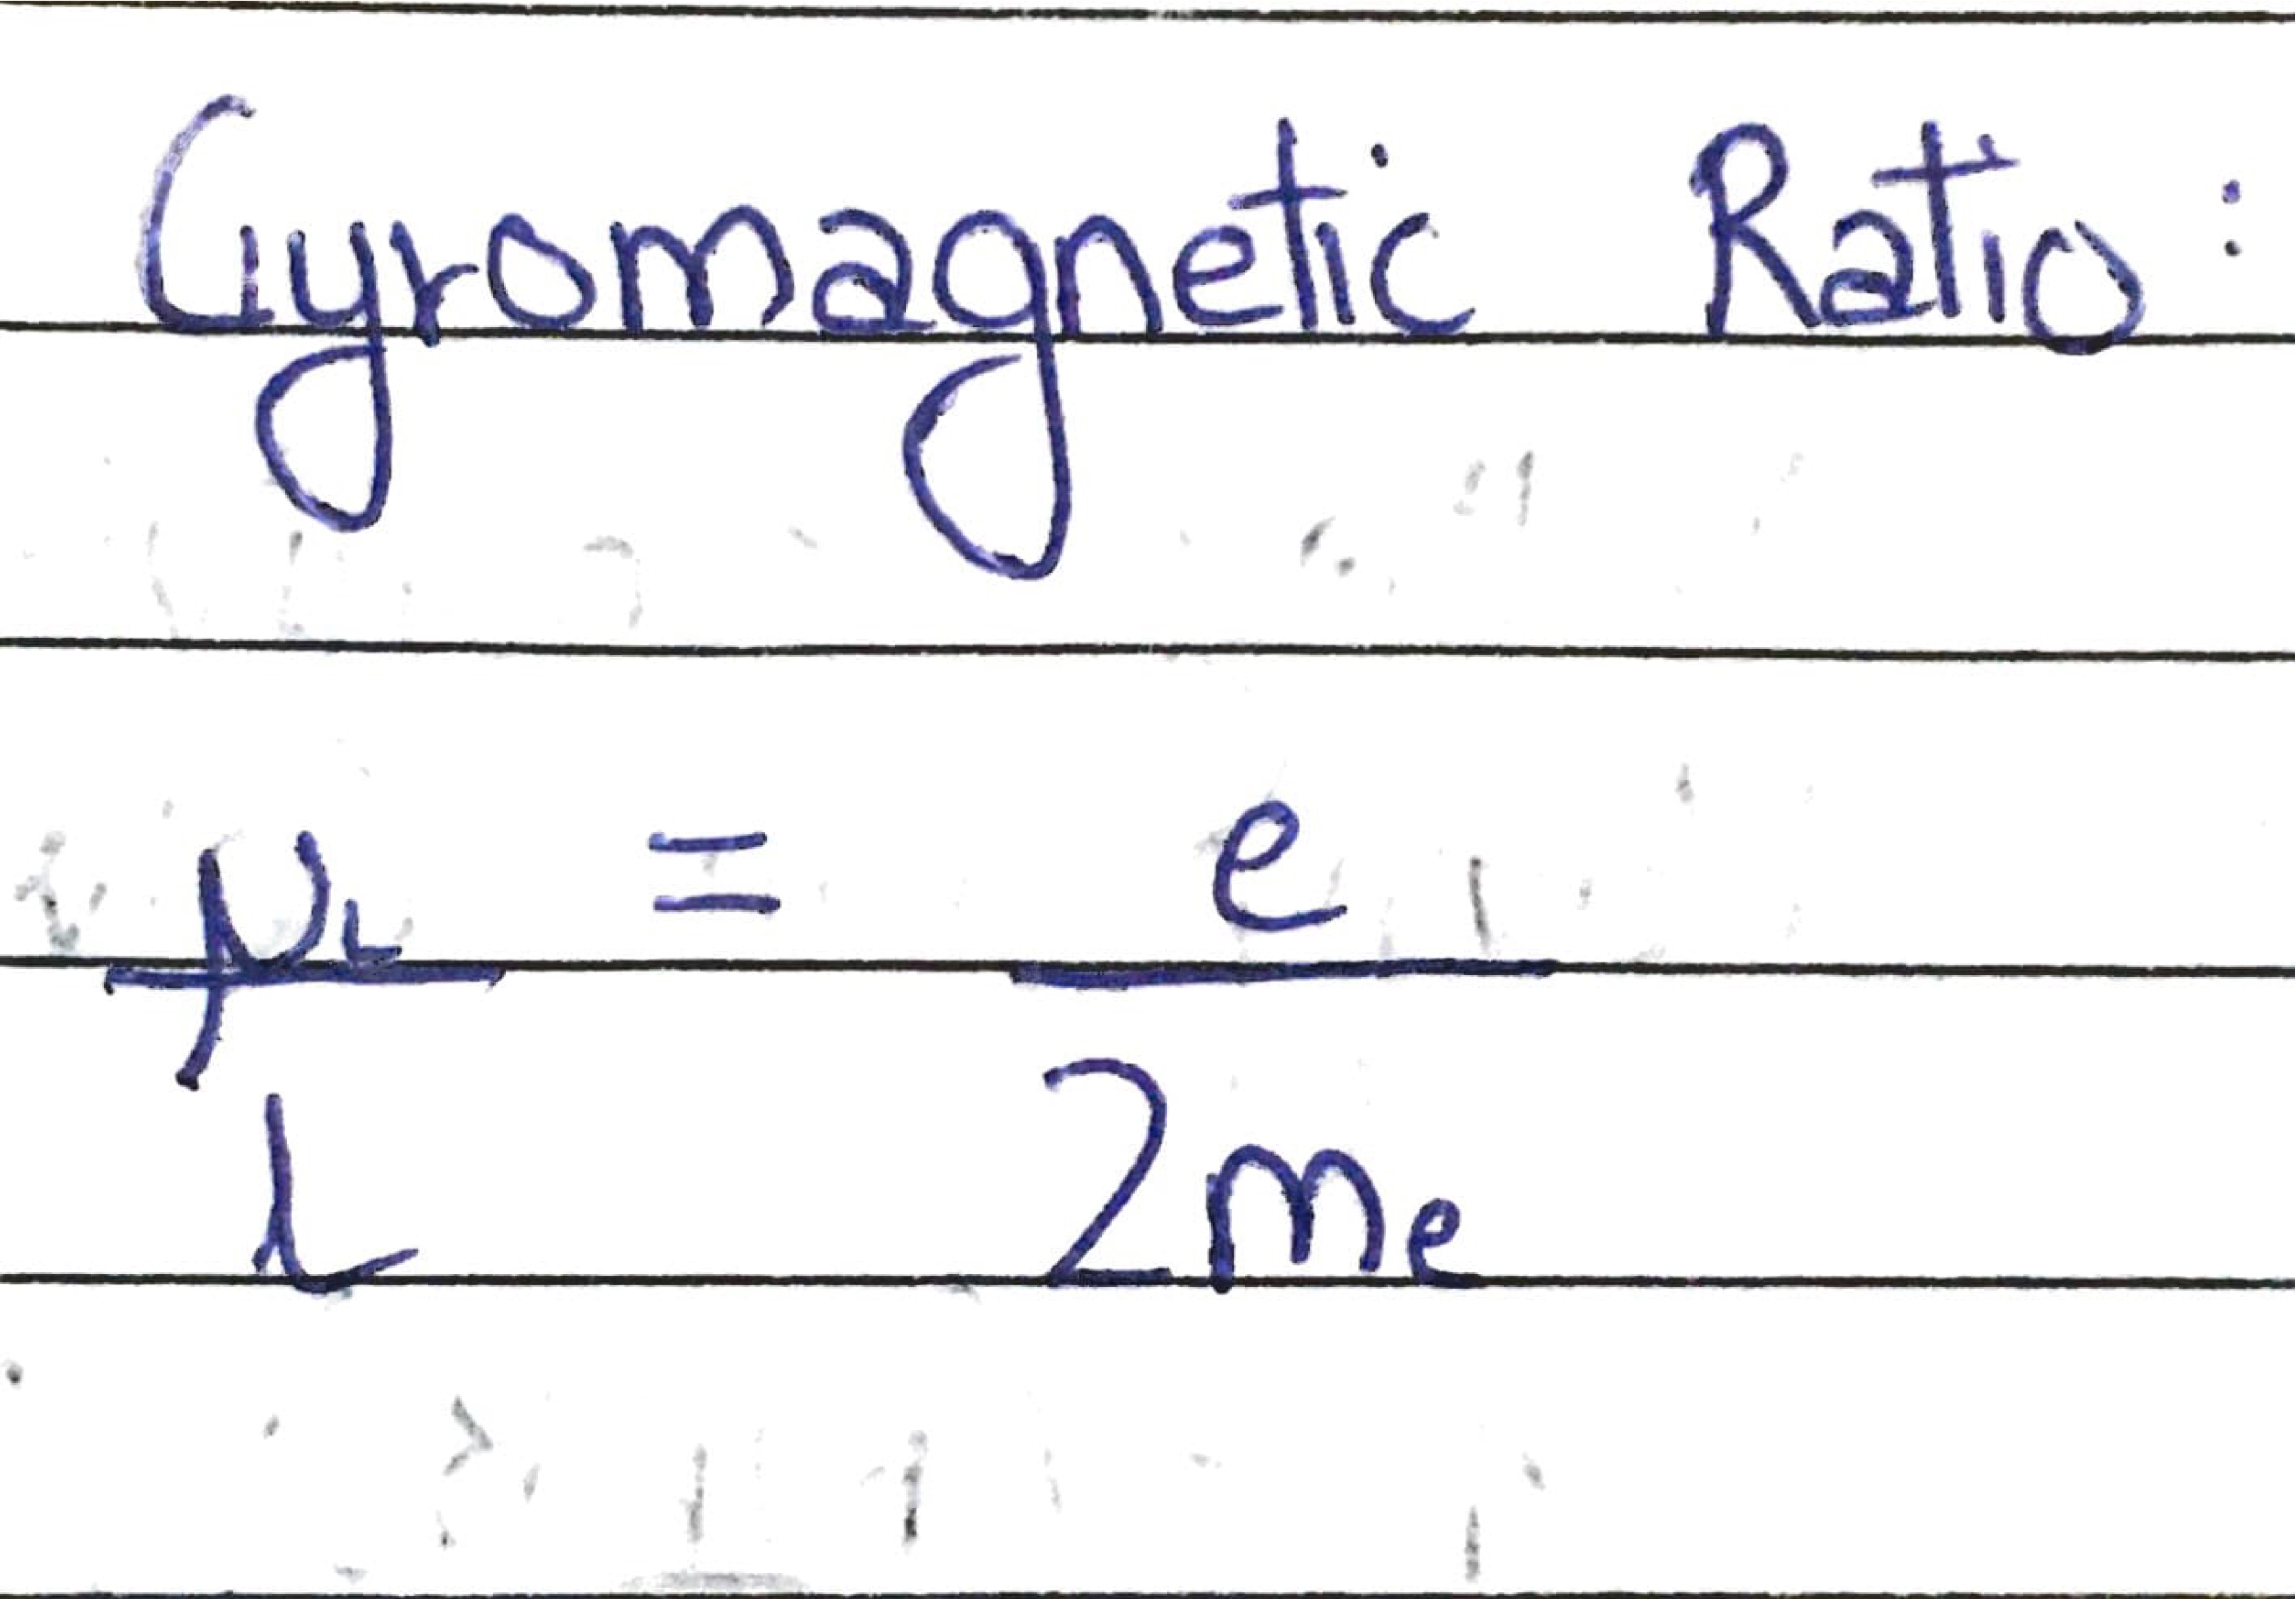 Gyromagnetic Ratio:
μL = e
L 2me